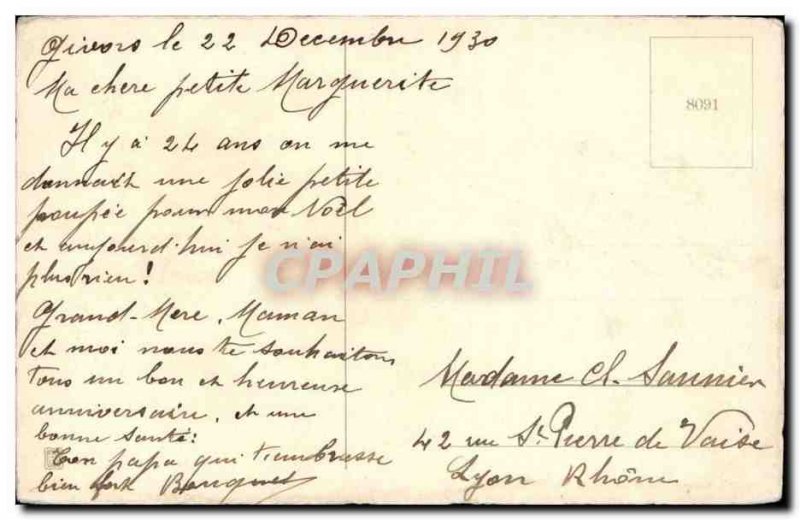 Givors le 22 Decembre 1930
Ma chere petite Marguerite
Il y à 24 ans on me
donnait une jolie petite
poupée pour mon Noël
et aujourd'hui je n'ai
plus rien!
Grand-Mere, Maman
et moi nous te souhaitons
tous un bon et heureuse
anniversaire, et une
bonne santé:
Ton papa qui t'embrasse
bien fort Bouquet
8091
CPAPHIL
Madame Cl. Saunier
42 rue St Pierre de Vaise
Lyon Rhône